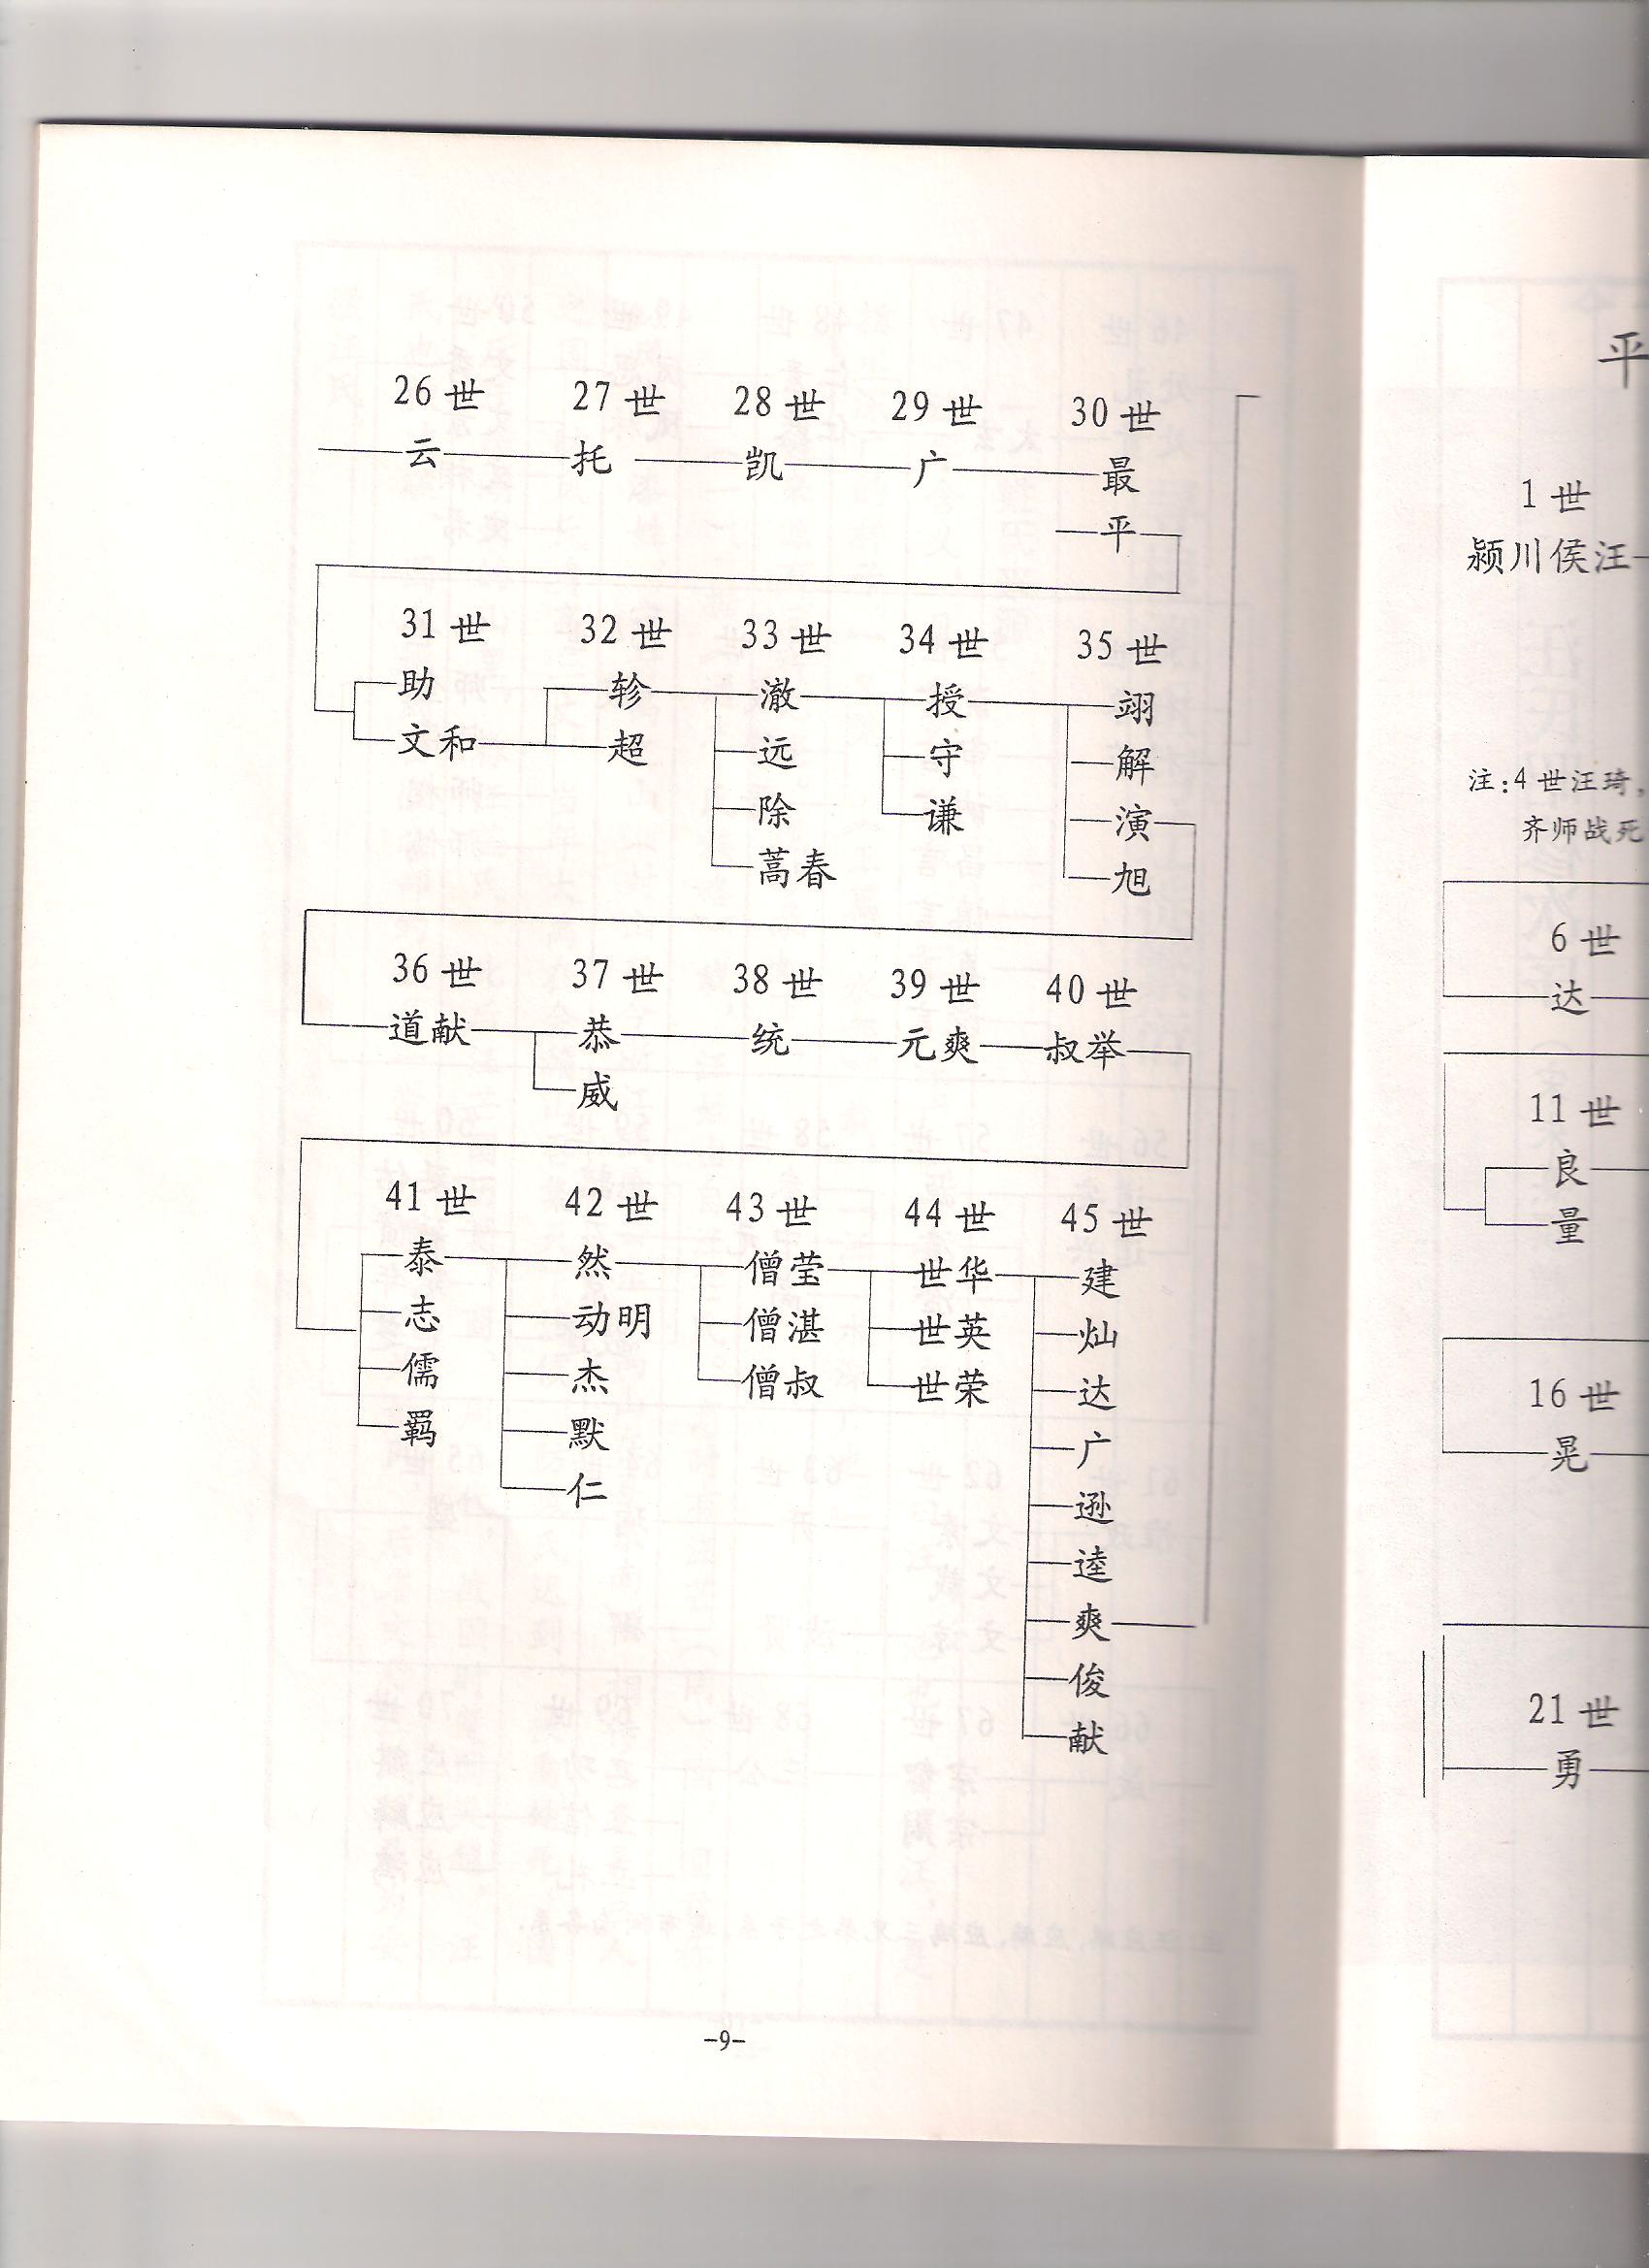 26世 27世 28世 29世 30世
云 托 凯 广 最
平
31世 32世 33世 34世 35世
助 轸 澈 授 翊
文和 超 远 守 解
除 谦 演
蒿春 旭
36世 37世 38世 39世 40世
道献 恭 统 元爽 叔举
威
41世 42世 43世 44世 45世
泰 然 僧莹 世华 建
志 动明 僧湛 世英 灿
儒 杰 僧叔 世荣 达
羁 默 广
仁 逊
逵
爽
俊
献
-9-
平
1世
颍川侯汪
注:4世汪琦,
齐师战死
6世
达
11世
良
量
16世
晃
21世
勇